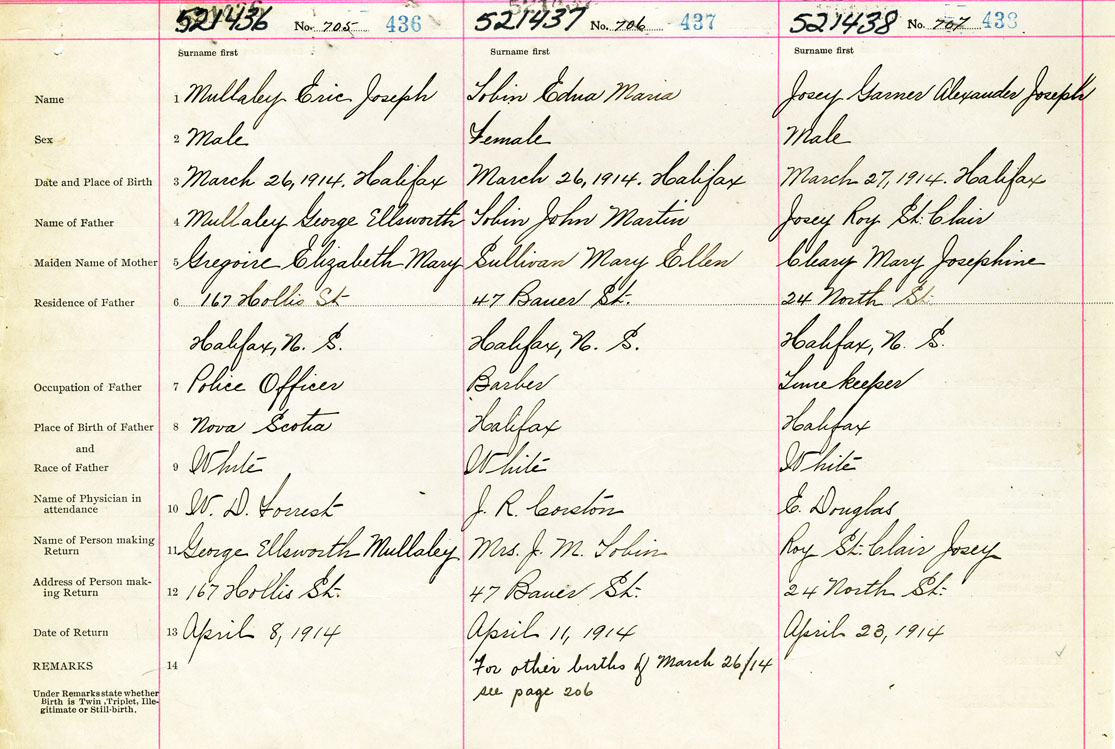 521436 No. 705 436 521437 No. 706 437 521438 No. 707 438
Surname first Surname first Surname first
Name 1 Mullaley Eric Joseph Tobin Edna Maria Josey Garner Alexander Joseph
Sex 2 Male Female Male
Date and Place of Birth 3 March 26, 1914. Halifax March 26, 1914. Halifax March 27, 1914. Halifax
Name of Father 4 Mullaley George Ellsworth Tobin John Martin Josey Roy St. Clair
Maiden Name of Mother 5 Gregoire Elizabeth Mary Sullivan Mary Ellen Cleary Mary Josephine
Residence of Father 6 167 Hollis St 47 Bauer St. 24 North St.
Halifax, N. S. Halifax, N. S. Halifax, N. S.
Occupation of Father 7 Police Officer Barber Timekeeper
Place of Birth of Father 8 Nova Scotia Halifax Halifax
and
Race of Father 9 White White White
Name of Physician in
attendance 10 W. D. Forrest J. R. Corston E. Douglas
Name of Person making
Return 11 George Ellsworth Mullaley Mrs. J. M. Tobin Roy St. Clair Josey
Address of Person mak-
ing Return 12 167 Hollis St. 47 Bauer St. 24 North St.
Date of Return 13 April 8, 1914 April 11, 1914 April 23, 1914
REMARKS 14 For other births of March 26/14
see page 206
Under Remarks state whether
Birth is Twin, Triplet, Ille-
gitimate or Still-birth.